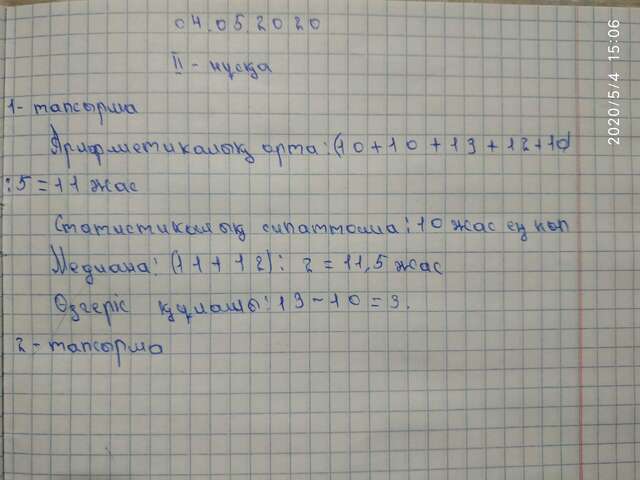 04.05.2020
II - нусқа
1- тапсырма
Арифметикалық орта: (10+10+13+12+10)
:5=11 жас
Статистикалық сипаттама: 10 жас ең көп
Медиана: (11+12): 2=11,5 жас
Өзгеріс құламы: 13-10=3.
2- тапсырма
2020/5/4 15:06